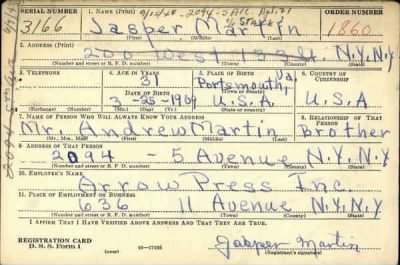 SERIAL NUMBER 1. NAME (Print) ORDER NUMBER
3166 Jasper Martin 1860
(First) (Middle) (Last)
2. ADDRESS (Print)
200 West 133 St. N.Y. N.Y
(Number and street or R. F. D. number) (Town) (County) (State)
3. TELEPHONE 4. AGE IN YEARS 5. PLACE OF BIRTH 6. COUNTRY OF CITIZENSHIP
31 Portsmouth, Va.
(Town or county)
DATE OF BIRTH
3-25-1909 U.S.A. U.S.A
(Exchange) (Number) (Mo.) (Day) (Yr.) (State or country)
7. NAME OF PERSON WHO WILL ALWAYS KNOW YOUR ADDRESS 8. RELATIONSHIP OF THAT PERSON
Mr. Andrew Martin Brother
(Mr., Mrs., Miss) (First) (Middle) (Last)
9. ADDRESS OF THAT PERSON
2094 - 5 Avenue N.Y. N.Y
(Number and street or R. F. D. number) (Town) (County) (State)
10. EMPLOYER'S NAME
Arrow Press Inc.
11. PLACE OF EMPLOYMENT OR BUSINESS
636 11 Avenue N.Y. N.Y
(Number and street or R. F. D. number) (Town) (County) (State)
I AFFIRM THAT I HAVE VERIFIED ABOVE ANSWERS AND THAT THEY ARE TRUE.
REGISTRATION CARD
D. S. S. FORM 1 16-17105 Jasper Martin
(Registrant's signature)